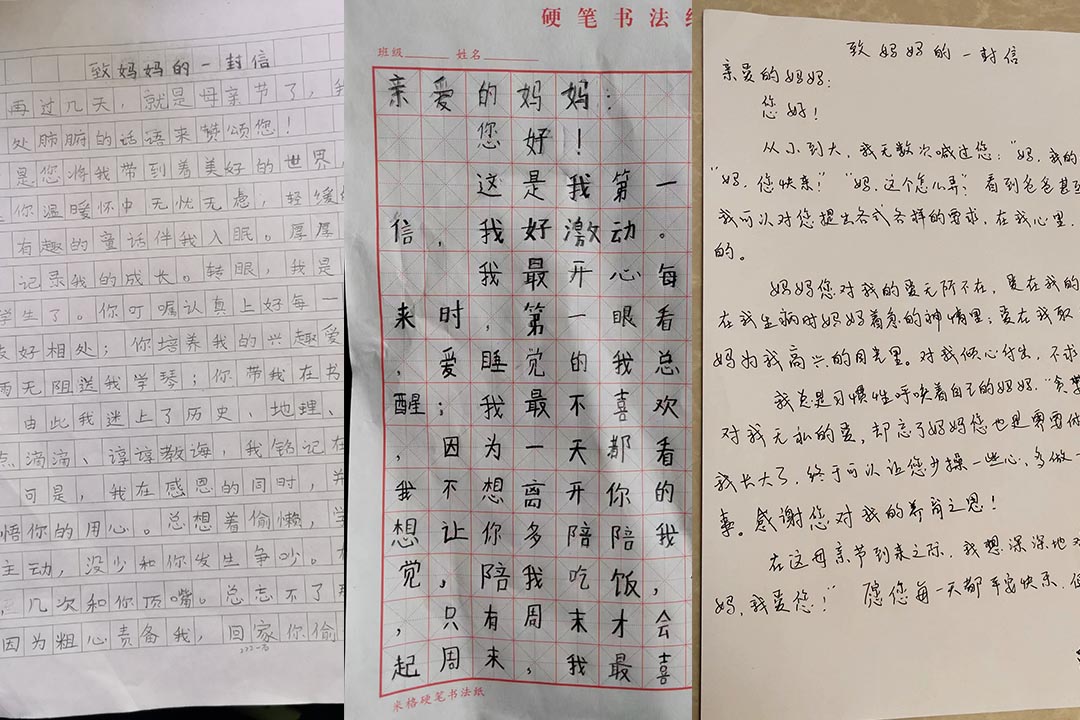 致妈妈的一封信
再过几天，就是母亲节了，我
处肺腑的话语来赞颂您！
是您将我带到着美好的世界，
你温暖怀中无忧无虑，轻缓
有趣的童话伴我入眠。厚厚
记录我的成长。转眼，我是
学生了。你叮嘱认真上好每一
友好相处；你培养我的兴趣爱
雨无阻送我学琴；你带我在书
由此我迷上了历史、地理、
点滴滴、谆谆教诲，我铭记在
可是，我在感恩的同时，并
悟你的用心。总想着偷懒，学
主动，没少和你发生争吵。
几次和你顶嘴。总忘不了那
因为粗心责备我，回家你偷
硬笔书法纸
班级 姓名
亲爱的妈妈：
您好！
这是我第一
信，我好激动。
我最开心每
来时，第一眼看
，爱睡觉的我总
醒；我最不喜欢
，因为一天都看
我不想离开你的
想让你多陪陪我
觉，陪我吃饭，
，只有周末才会
起周末，我最喜
米格硬笔书法纸
致妈妈的一封信
亲爱的妈妈：
您好！
从小到大，我无数次喊过您："妈，我的
"妈，您快来！""妈，这个怎么弄？"看到爸爸甚至
我可以对您提出各式各样的要求，在我心里，
的。
妈妈您对我的爱无所不在，爱在我的
在我生病时妈妈着急的神情里；爱在我取
妈为我高兴的目光里。对我倾心付出，不求
我总是习惯性呼唤着自己的妈妈，
对我无私的爱，却忘了妈妈您也是需要
我长大了，终于可以让您少操一些心，多做一
事。感谢您对我的养育之恩！
在这母亲节到来之际，我想深深地对
妈，我爱您！"愿您每一天都平安快乐，